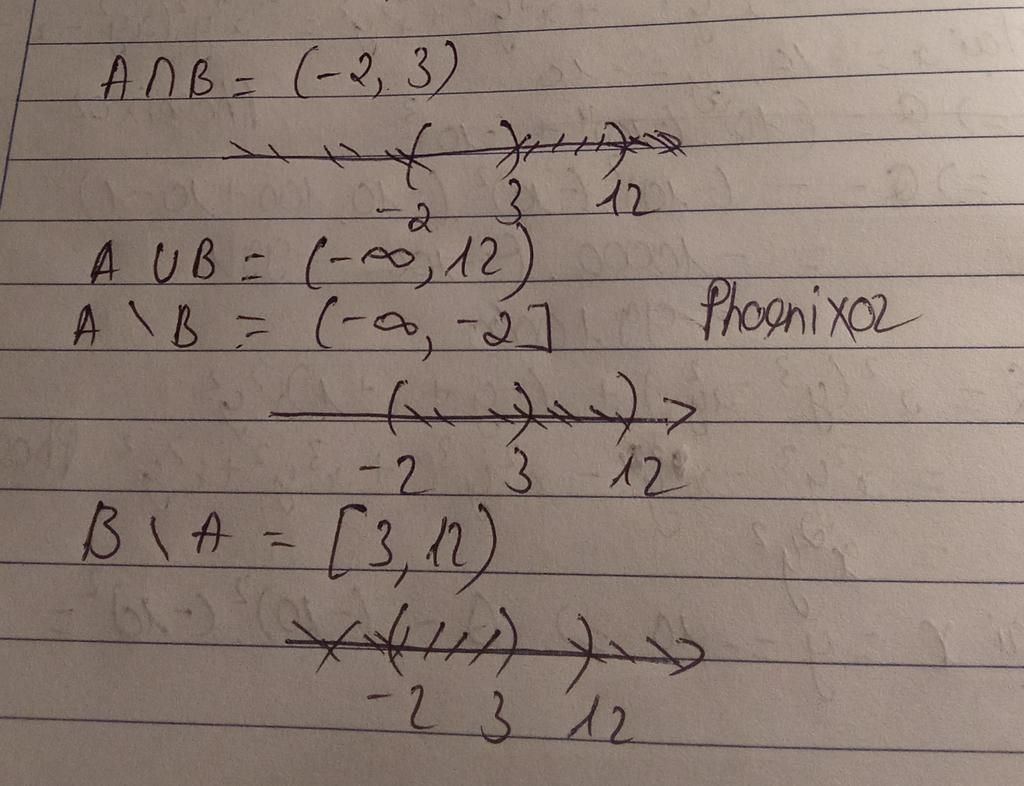 A∩B = (-2, 3)
-2 3 12
A ∪ B = (-∞, 12)
A \ B = (-∞, -2] Phoenix02
-2 3 12
B \ A = [3, 12)
-2 3 12